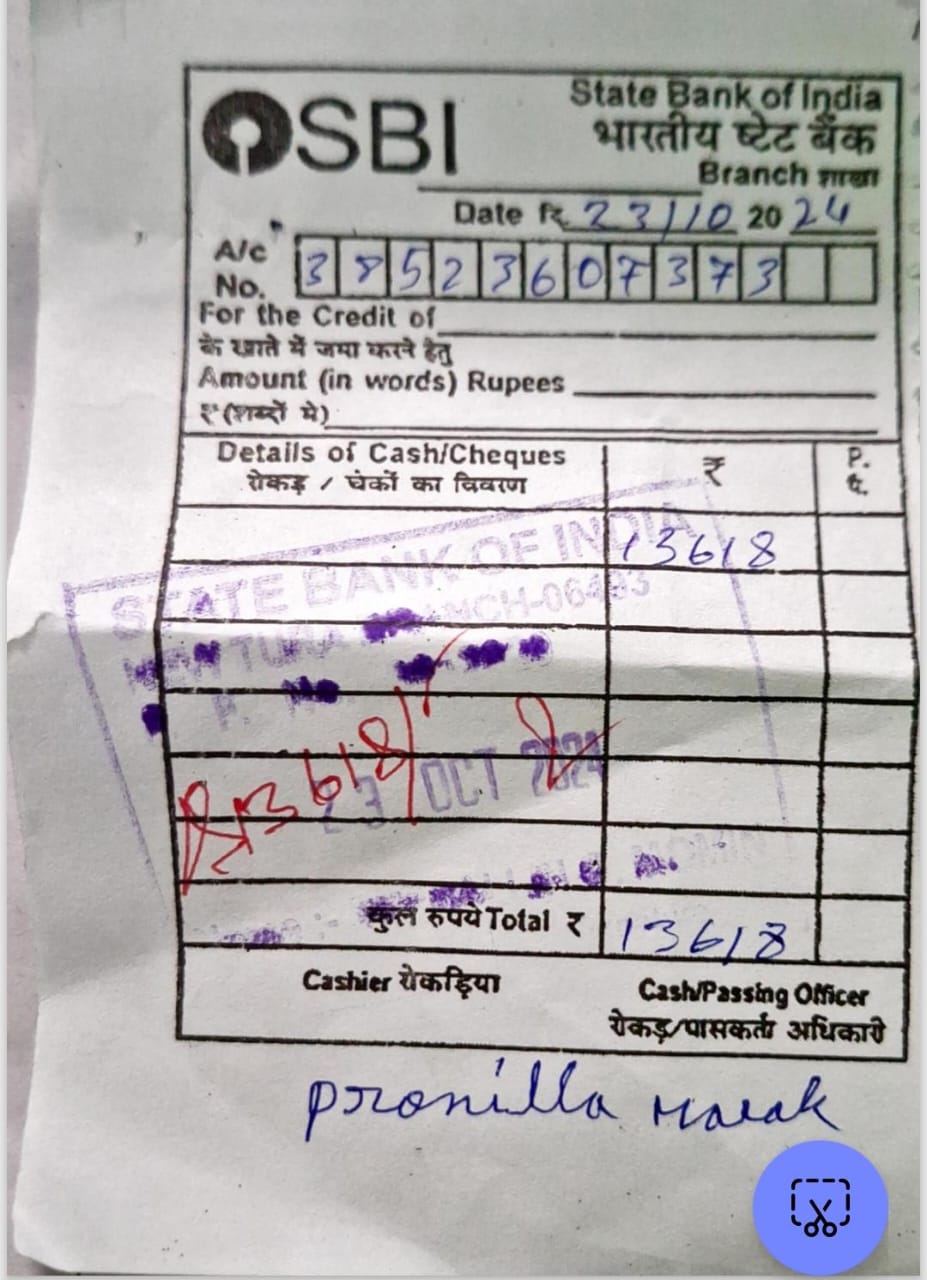 SBI
State Bank of India
भारतीय स्टेट बैंक
Branch शाखा
Date दि. 23/10 2024
A/c No. 38523607373
For the Credit of
के खाते में जमा करने हेतु
Amount (in words) Rupees
₹ (शब्दों में)
Details of Cash/Cheques ₹ P.
रोकड़ / चेकों का विवरण पै.
13618
STATE BANK OF INDIA
NEW TURA BRANCH-06493
13618/
23 OCT 2024
कुल रुपये Total ₹ 13618
Cashier रोकड़िया
Cash/Passing Officer
रोकड़/पासकर्ता अधिकारी
Pronilla Marak